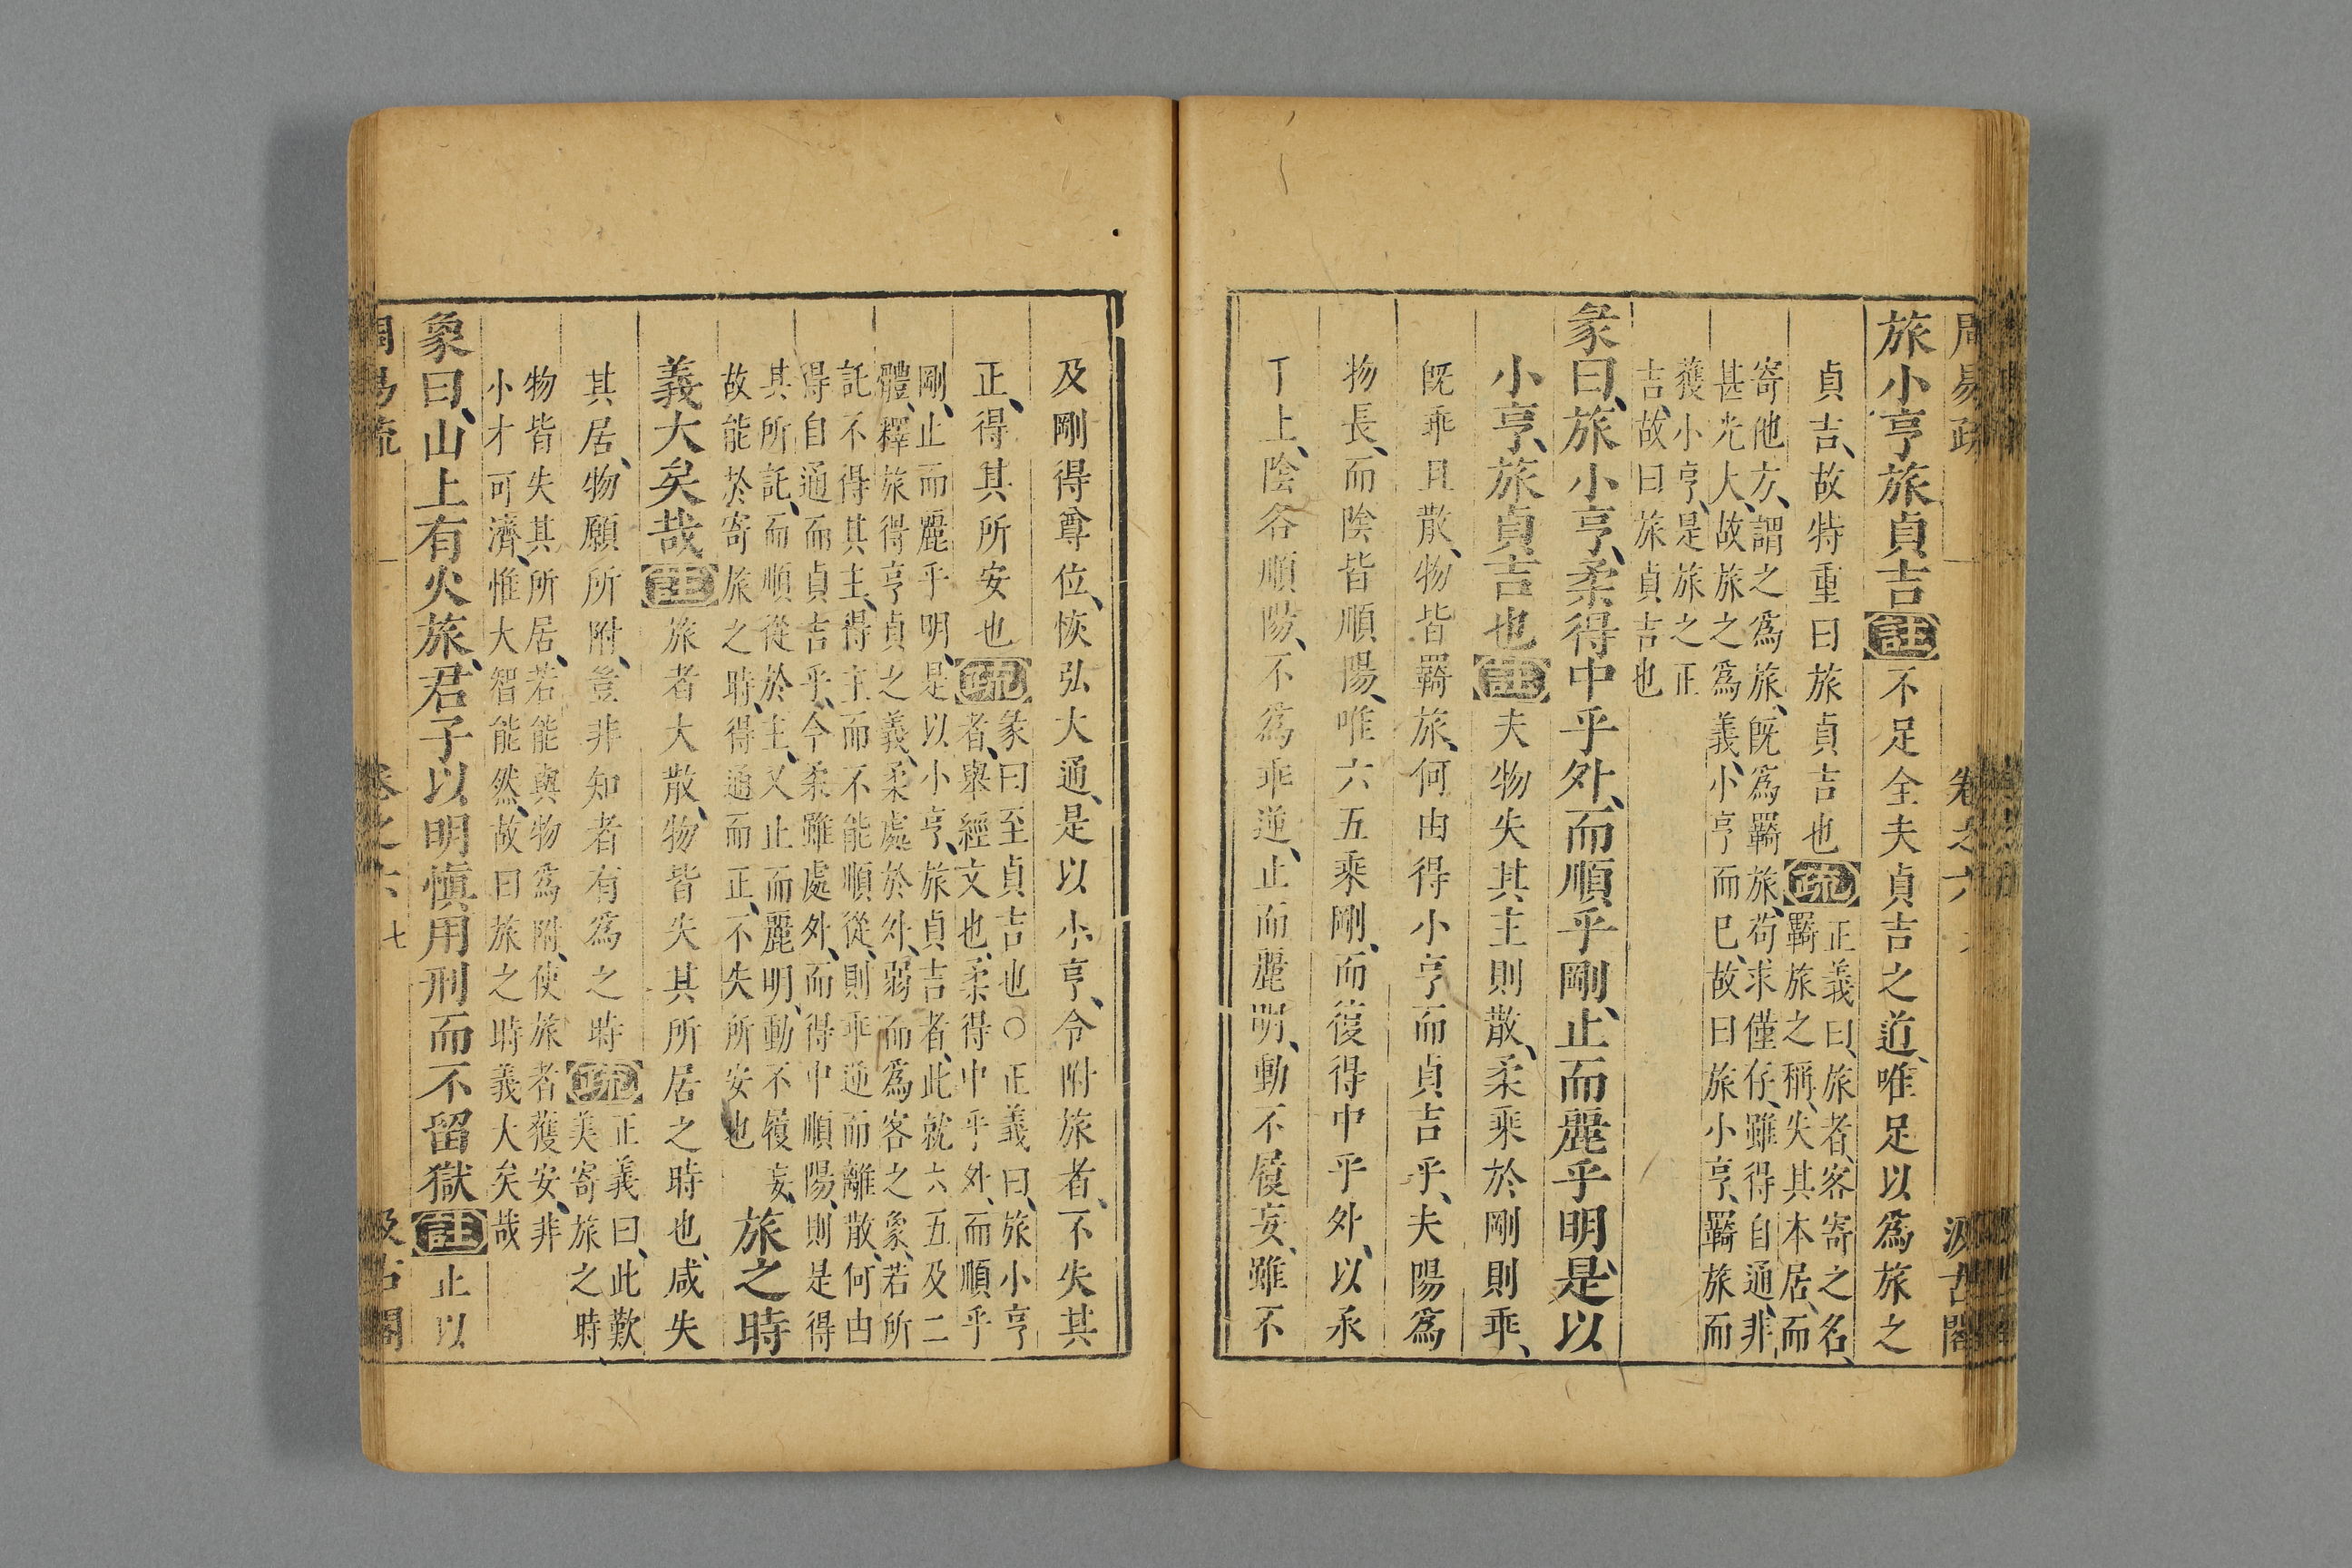 周易疏 卷之六 汲古閣
旅小亨旅貞吉註不足全夫貞吉之道唯足以爲旅之
貞吉故特重曰旅貞吉也疏
正義曰旅者客寄之名
羇旅之稱失其本居而
寄他方謂之爲旅旣爲羇旅苟求僅存雖得自通非
甚光大故旅之爲義小亨而已故曰旅小亨羇旅而
獲小亨是旅之正
吉故曰旅貞吉也
彖曰旅小亨柔得中乎外而順乎剛止而麗乎明是以
小亨旅貞吉也註夫物失其主則散柔乘於剛則乖
旣乖且散物皆羇旅何由得小亨而貞吉乎夫陽爲
物長而陰皆順陽唯六五乘剛而復得中乎外以承
丁上陰各順陽不爲乖逆止而麗明動不履妄雖不
及剛得尊位恢弘大通是以小亨令附旅者不失其
正得其所安也疏
彖曰至貞吉也○正義曰旅小亨
者舉經文也柔得中乎外而順乎
剛止而麗乎明是以小亨旅貞吉者此就六五及二
體釋旅得亨貞之義柔處於外弱而爲客之象若所
託不得其主得主而不能順從則乖逆而離散何由
得自通而貞吉乎今柔雖處外而得中順陽則是得
其所託而順從於主又止而麗明動不履妄
故能於寄旅之時得通而正不失所安也
旅之時
義大矣哉註旅者大散物皆失其所居之時也咸失
其居物願所附豈非知者有爲之時疏
正義曰此歎
美寄旅之時
物皆失其所居若能與物爲附使旅者獲安非
小才可濟惟大智能然故曰旅之時義大矣哉
象曰山上有火旅君子以明慎用刑而不留獄註止以
周易疏 卷之六 七 汲古閣